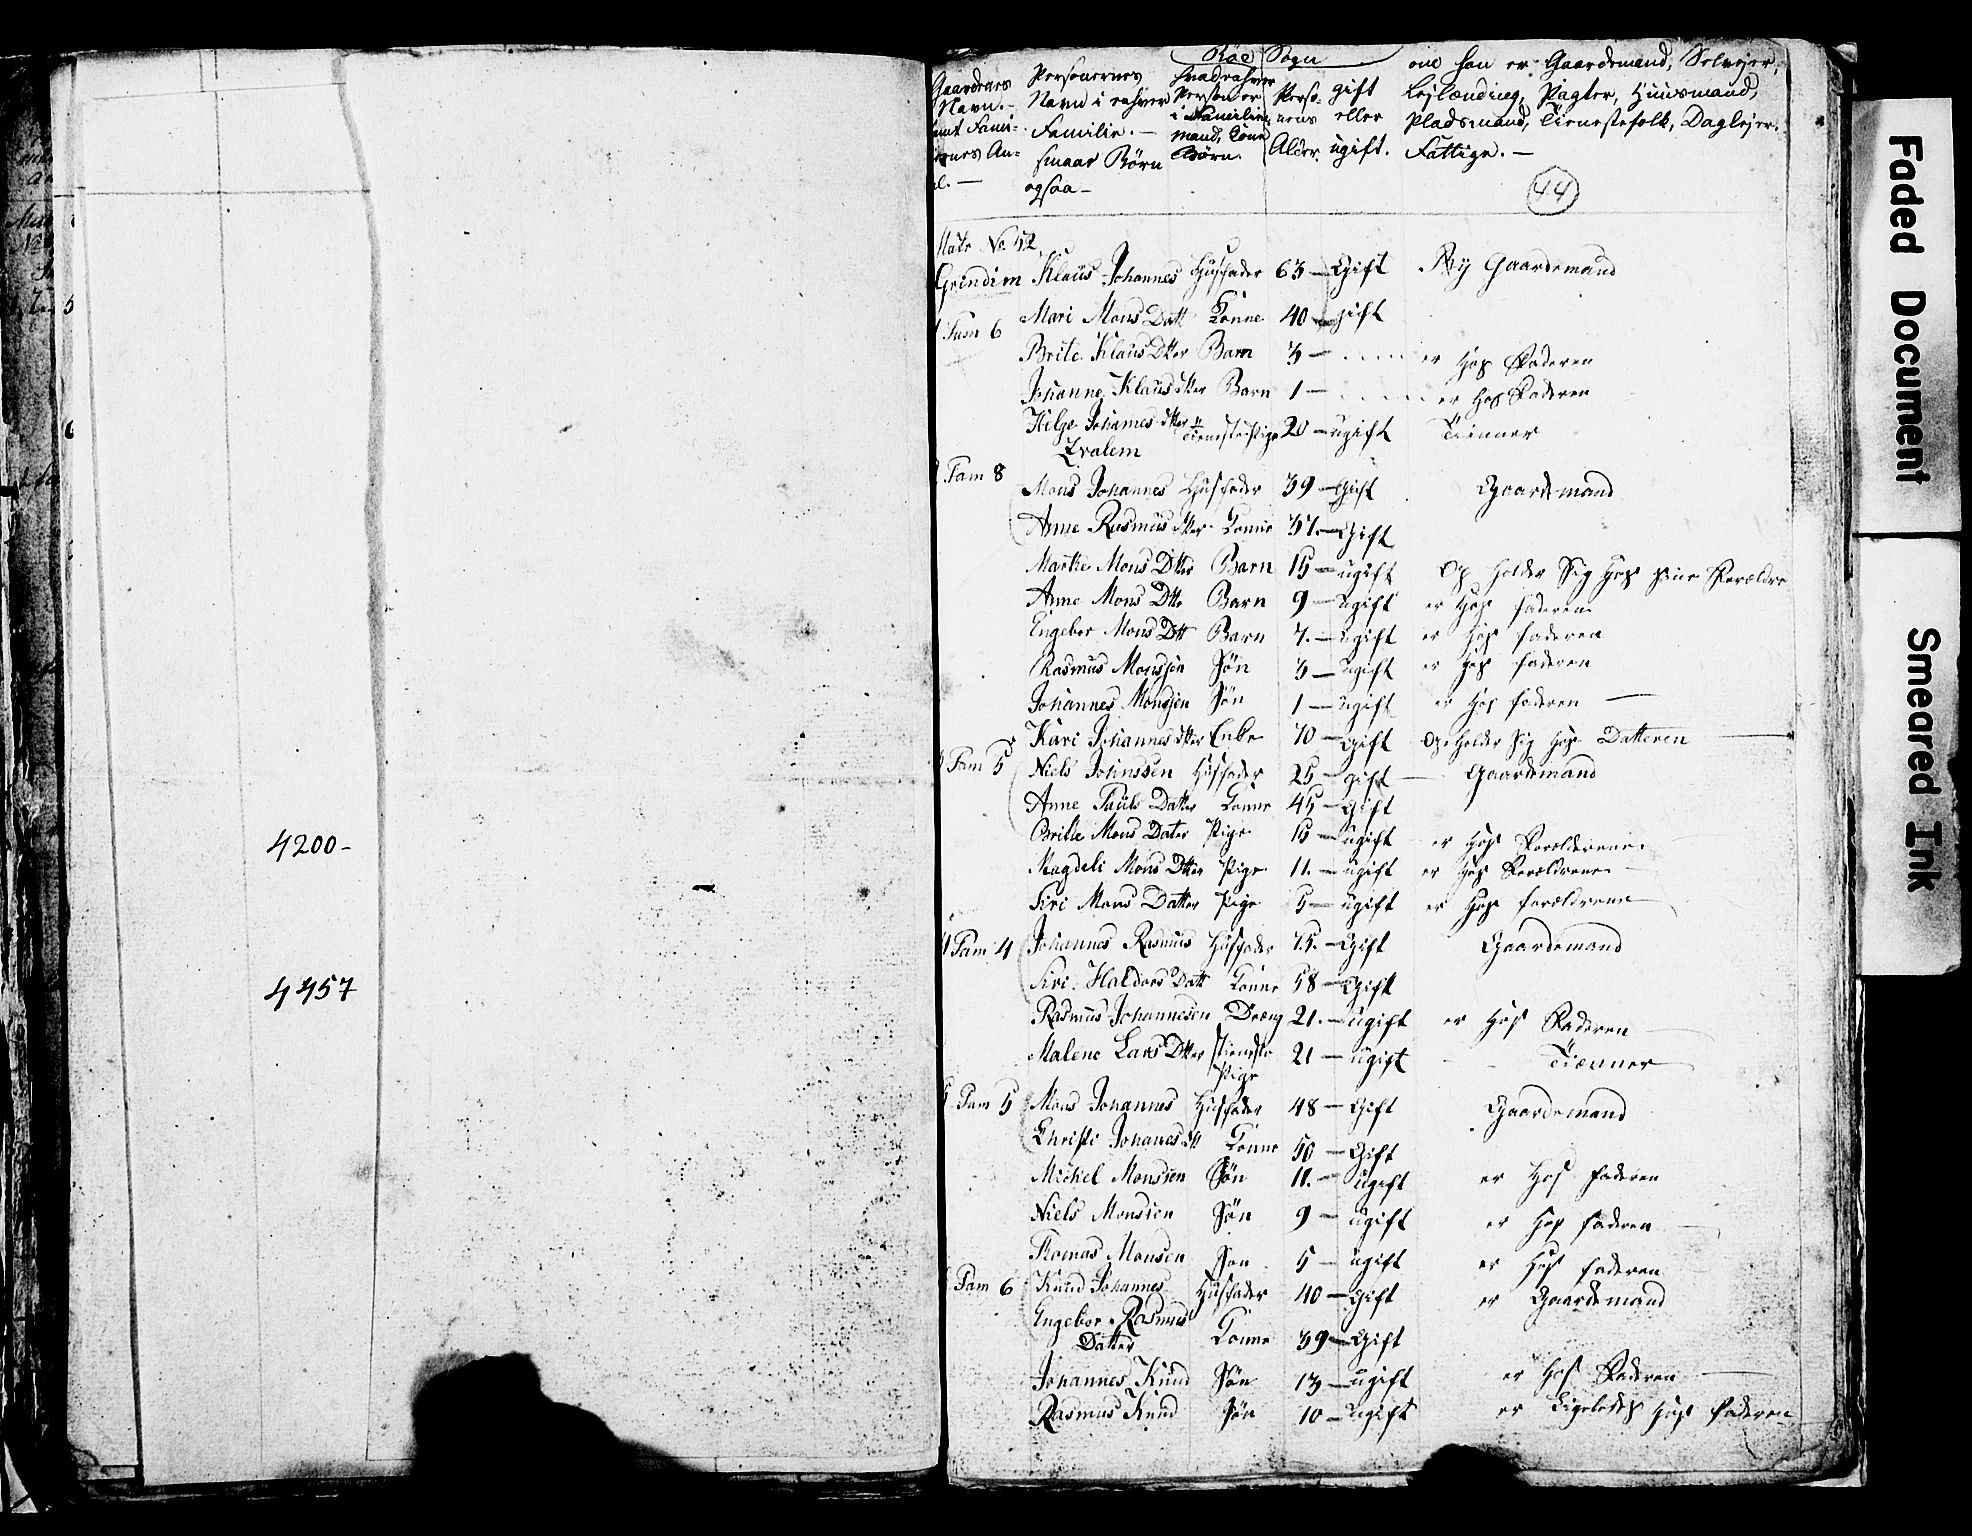 4200-
4457
Røe Sogn
Gaardenes Navn. - samt Familiernes An= tal. -
Personernes Navn i enhver Familie. - smaae Børn ogsaa -
hvad enhver Person er i Familien, mand, Kone Børn.
Perso= nens Alder.
gift eller ugift.
om han er Gaardemand, Selvejer, Lejlænding, Pagter, Huusmand, Pladsmand, Tienestefolk, Daglejer. Fattige. -
44
No 42
Grindim Klaus Johannes Husfader 63 - Gift Gaardemand
Fam 6 Mari Mons Datt Konne 40 - gift
Brite Klaus Dtter Barn 3 - er Hos Faderen
Johanne Klausdtter Barn 1 - er Hos Faderen
Helge Johannesdtter Tieneste Pige 20 - ugift Tienner
Fam 8 Mons Johannes Husfader 39 - Gift Gaardemand
Anne Rasmus dtter Konne 37 - Gift
Marthe Mons Dtter Barn 15 - ugift Op holder Sig Hos sine Forældre
Anne Mons Dtte Barn 9 - ugift er Hos faderen
Engebor Mons Dtt Barn 7. - ugift er Hos faderen
Rasmus Monssen Søn 3 - ugift er Hos faderen
Johannes Monssen Søn 1 - ugift er Hos faderen
Kari Johannesdtter Enke 70 - Gift Opholder Sig Hos Datteren
Fam 5 Niels Johnssen Husfader 25 - gift - Gaardemand
Anne Pauls Datter Konne 45 - Gift
Britte Mons Dater Pige 15 - ugift er Hos Forælderene.
Magdeli Mons Dtter Pige 11. - ugift er Hos Forældrene
Siri Mons Datter Pige 5 - ugift er Hos forældrene
Fam 4 Johannes Rasmus Husfader 75. - Gift Gaardemand
Siri Haldors Datt Konne 58 - Gift
Rasmus Johannesen Dreng 21. - ugift er Hos Faderen
Malene Lars Dtter Tieneste Pige 21 - ugift Tienner
Fam 5 Mons Johannes Husfader 48 - Gift Gaardemand
Christi Johanes dtt Konne 50 - Gift
Michel Monssen Søn 11. - ugift er Hos faderen
Niels Monssen Søn 9 - ugift er Hos faderen
Thomas Monsen Søn 5 - ugift er Hos faderen
Fam 6 Knud Johannes Husfader 40 - Gift er Gaardemand
Engebor Rasmus
Datter Konne 39 - Gift
Johannes Knud Søn 13 - ugift er Hos Faderen
Rasmus Knud Søn 10 - ugift er Ligeledes Hos faderen
Faded Document
Smeared Ink